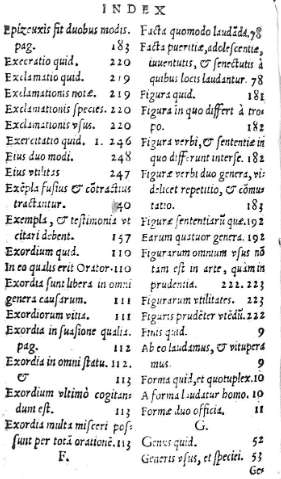 INDEX
Epizeuxis fit duobus modis.
pag. 183
Execratio quid. 220
Exclamatio quid. 219
Exclamationis notæ. 219
Exclamationis species. 220
Exclamationis vsus. 220
Exercitatio quid. 1. 246
Eius duo modi. 248
Eius vtilitas 247
Exẽpla fusius & cõtractius
tractantur. 40
Exempla, & testimonia vt
citari debent. 157
Exordium quid. 110
In eo qualis erit Orator. 110
Exordia sunt libera in omni
genera causarum. 111
Exordiorum vitia. 111
Exordia in suasione qualia.
pag. 112
Exordia in omni statu. 112.
& 113
Exordium vltimò cogitan
dum est. 113
Exordia multa misceri pos-
sunt per totã orationẽ. 113
F.
Facta quomodo laudãda. 78
Facta pueritiæ, adolescentiæ,
iuuentutis, & senectutis à
quibus locis laudantur. 78
Figura quid. 181
Figura in quo differt à tro
po. 182
Figura verbi, & sententiæ in
quo differunt interse. 182
Figuræ verbi duo genera, vi
delicet repetitio, & cõmu
tatio. 183
Figuræ sententiarũ quæ. 192
Earum quatuor genera. 192
Figurarum omnium vsus nõ
tam est in arte, quàm in
prudentia. 222. 223
Figurarum vtilitates. 223
Figuris prudẽter vtẽdũ. 222
Finis quid. 9
Ab eo laudamus, & vitupera
mus. 9
Forma quid, et quotuplex. 10
A forma laudatur homo. 10
Formæ duo officia. 11
G.
Genus quid. 52
Generis vsus, et speciei. 53
Gen